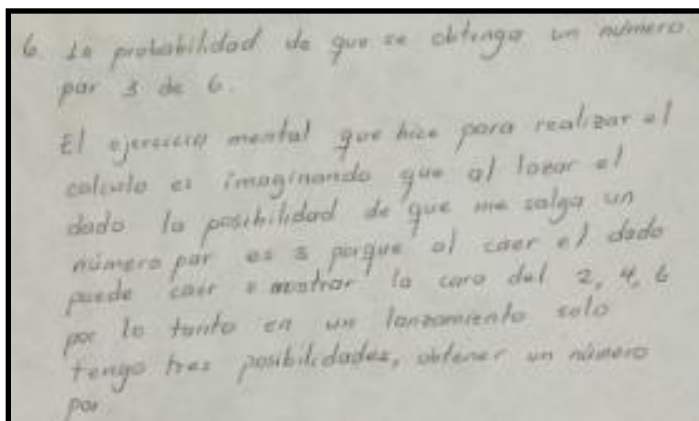 6. La probabilidad de que se obtenga un número
par 3 de 6.
El ejercicio mental que hice para realizar el
calculo es imaginando que al lanzar el
dado la posibilidad de que me salga un
número par es 3 porque al caer el dado
puede caer o mostrar la cara del 2, 4, 6
por lo tanto en un lanzamiento solo
tengo tres posibilidades, obtener un número
par.